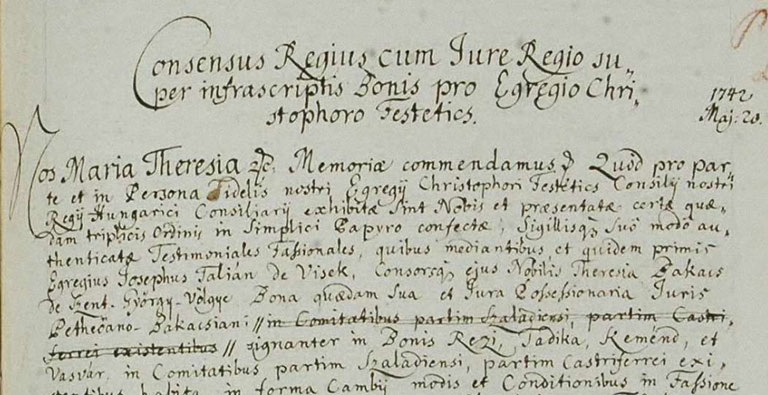 Consensus Regius cum Jure Regio su„
per infrascriptis Bonis pro Egregio Chri„
stophoro Festetics.
1742
Maj: 20.
Nos Maria Theresia &c. Memoriæ commendamus &c. Quòd pro par„
te et in Persona Fidelis nostri Egregij Christophori Festetics Consilij nostri
Regij Hungarici Consiliarij exhibitæ sint Nobis et præsentatæ certæ quæ„
dam triplicis Ordinis in Simplici Papyro confectæ, Sigillisq. suo modo au„
thenticatæ Testimoniales Fassionales, quibus mediantibus et quidem primis
Egregius Josephus Talián de Visek, Consorsq. ejus Nobilis Theresia Bakacs
de Szent-György-Völgye Bona quædam sua et Jura Possessionaria Juris
Petheöano-Bakacsiani // in Comitatibus partim Szaladiensi, partim Castri„
ferrei existentibus // signanter in Bonis Rezi, Tadika, Keménd, et
Vasvár, in Comitatibus partim Szaladiensi, partim Castriferrei exi„
stentibus habita, in forma Cambij modis et Conditionibus in Fassione